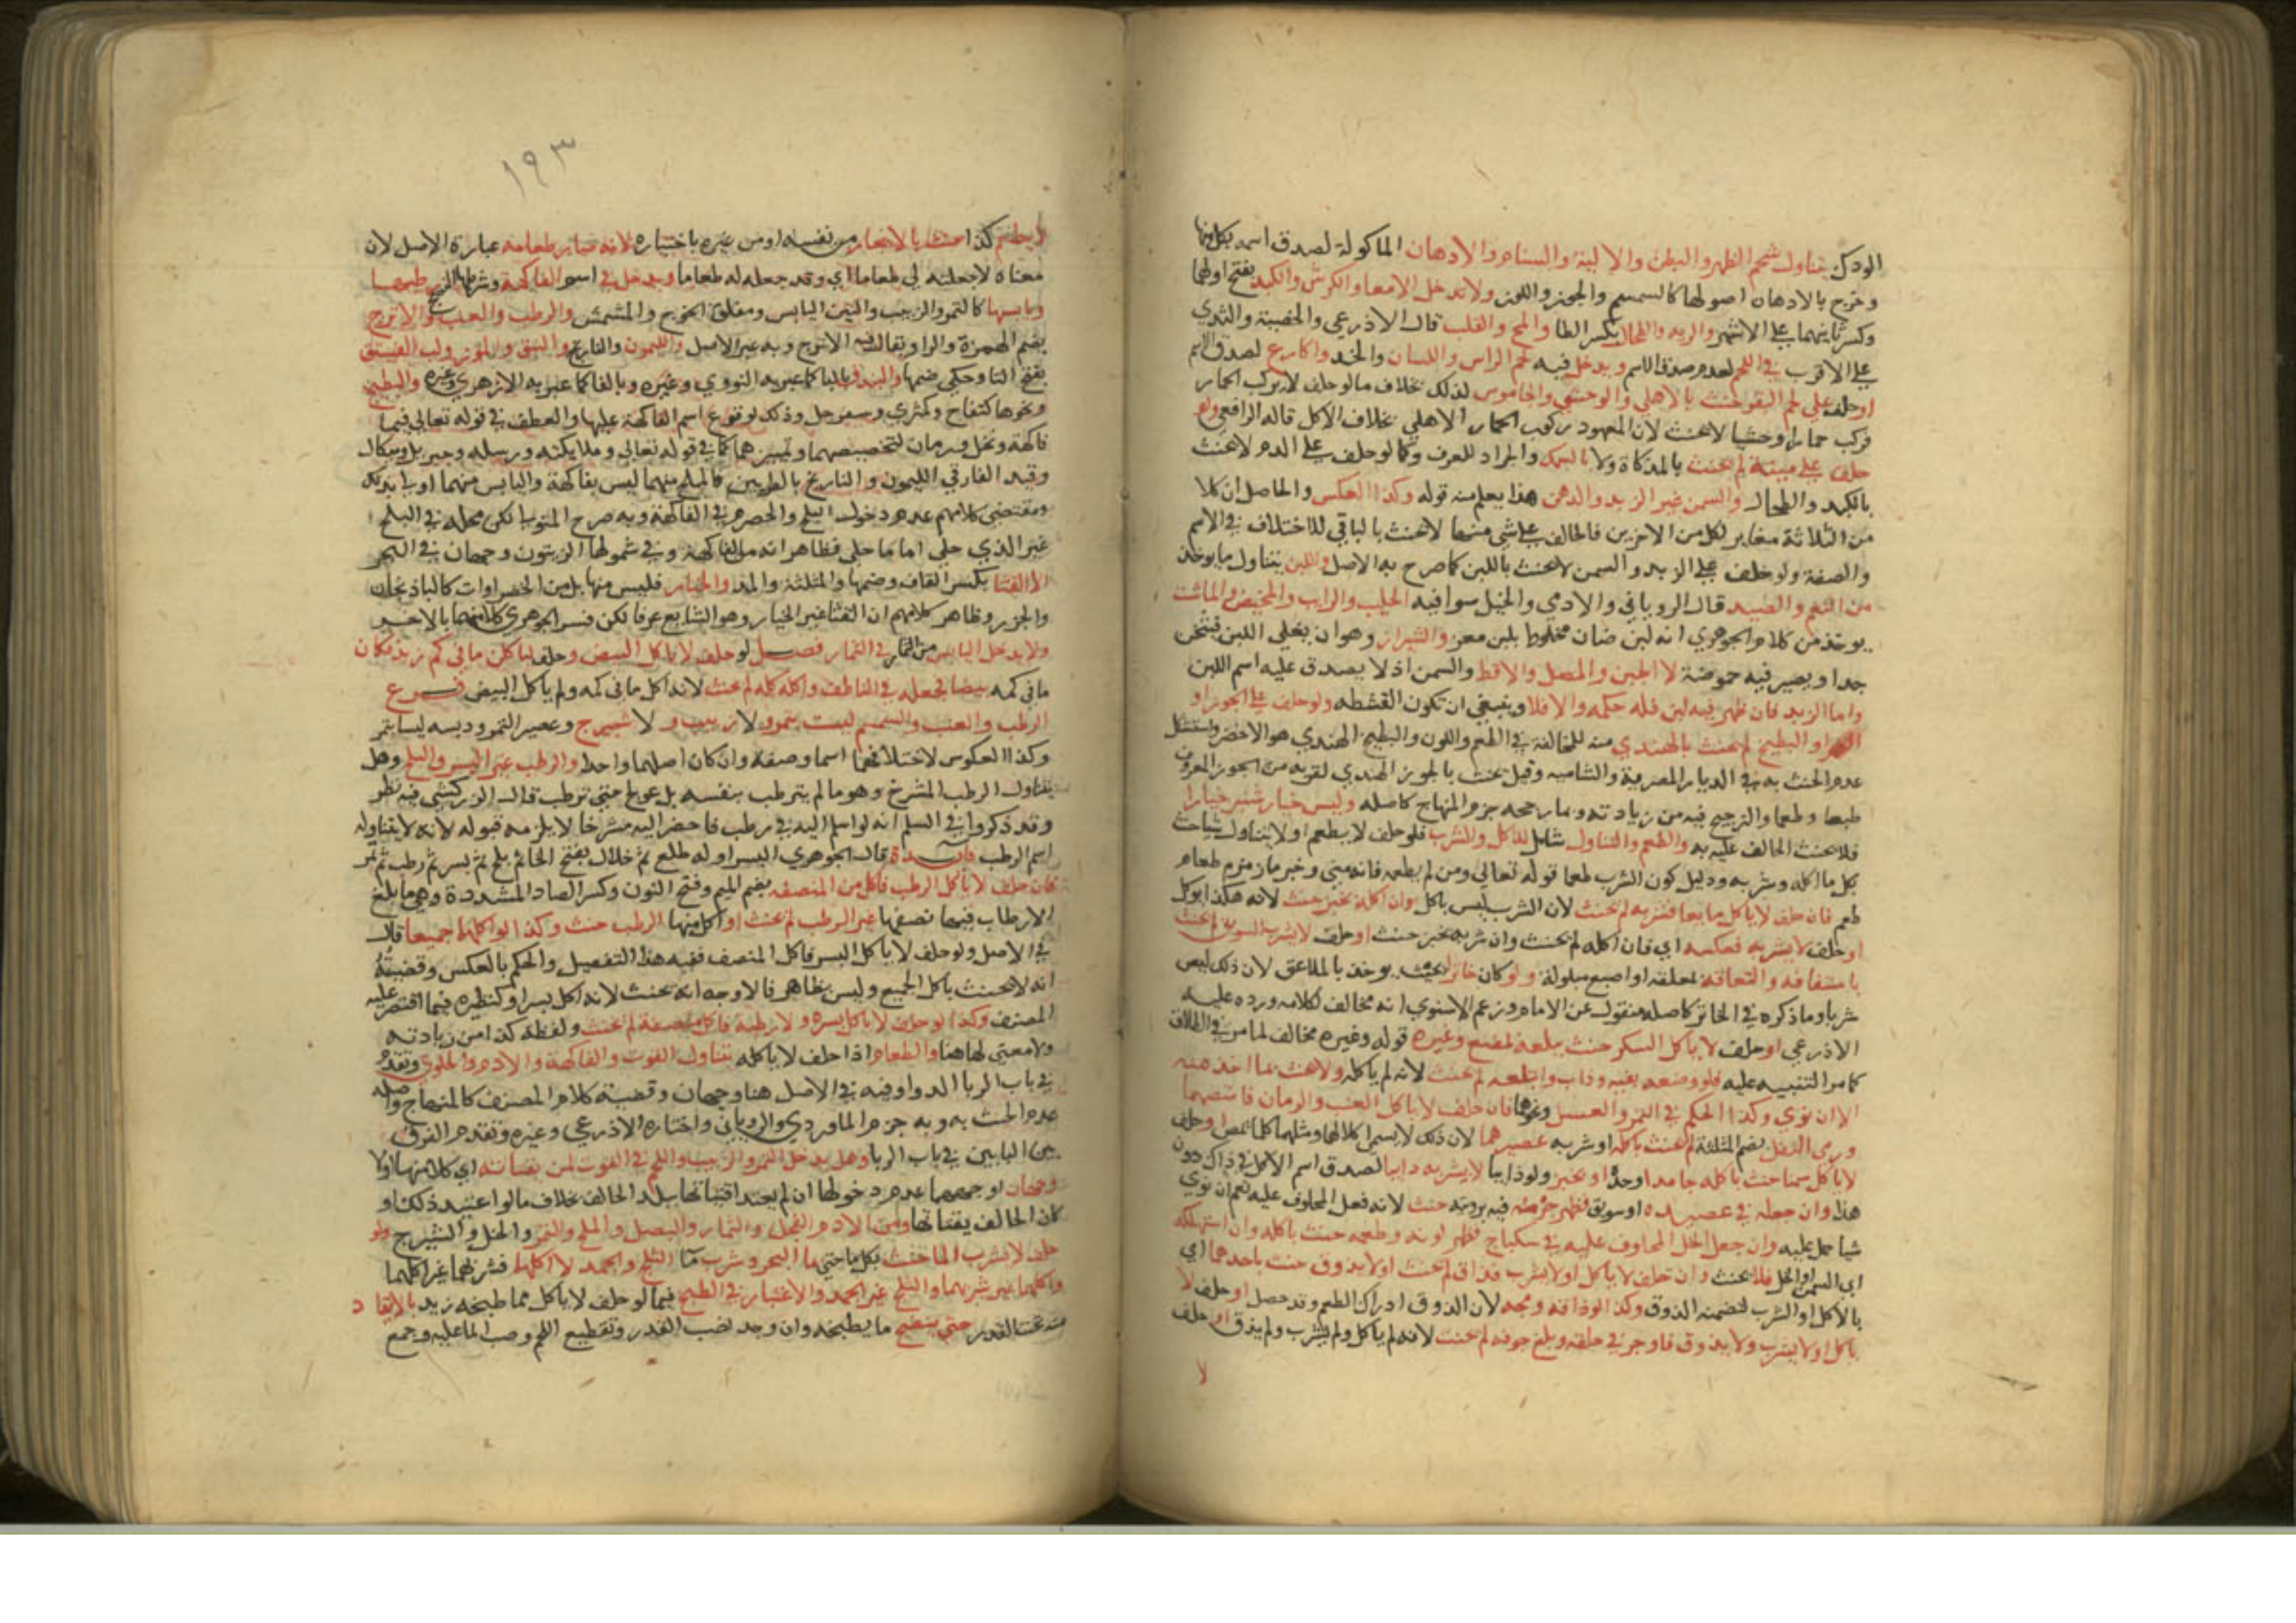 الودك يتناول شحم الظهر والبطن والالية والسنام والادهان الماكولة لصدق اسمه بكل منها
وخرج بالادهان اصولها كالسمسم والجوز واللوز ولا تدخل الامعا والكرش والكبد بفتح اولها
وكسر ثانيهما على الاشهر والرية والطحال بكسر الطا والمخ والقلب قال الاذرعي والخصية والثدي
على الاقرب في اللحم لعدم صدق الاسم ويدخل فيه لحم الراس واللسان والخد واكارع لصدق الاسم
او حلف على لحم البقر حنث بالاهلي والوحشي والجاموس لذلك بخلاف ما لو حلف لا يركب الحمار
فركب حمارا وحشيا لا يحنث لان المعهود ركوب الحمار الاهلي بخلاف الاكل قاله الرافعي ولو
حلف على ميتة لم يحنث بالمذكاة ولا بالسمك والجراد للعرف وكما لو حلف على الدم لا يحنث
بالكبد والطحال والسمن غير الزبد والدهن هذا يعلم منه قوله وكذا العكس والحاصل ان كلا
من الثلاثة مغاير لكل من الاخرين فالحالف على شي منها لا يحنث بالباقي للاختلاف في الاسم
والصفة ولو حلف على الزبد والسمن لا يحنث باللبن كما صرح به الاصل واللبن يتناول ما يوخذ
من النعم والصيد قال الروياني والادمي والخيل سوا فيه الحليب والرايب والمخيض والماشت
يوخذ من كلام الجوهري انه لبن ضان مخلوط بلبن معز والشيراز وهو ان يغلي اللبن فيثخن
جدا ويصير فيه حموضة لا الجبن والمصل والاقط والسمن اذ لا يصدق عليه اسم اللبن
واما الزبد فان ظهر فيه لبن فله حكمه والا فلا وينبغي ان تكون القشطه ولو حلف على الجوز او
التمر او البطيخ لم يحنث بالهندي منه للمخالفة في الطعم واللون والبطيخ الهندي هو الاخضر واستشكل
عدم الحنث به في الديار المصرية والشامية وقيل يحنث بالجوز الهندي لقربه من الجوز المعروف
طبعا وطعما والترجيح فيه من زيادته وبما رجحه جزم المنهاج كاصله وليس خيار شنبر خيارا
فلا يحنث الحالف عليه به والطعم والتناول شامل للاكل والشرب فلو حلف لا يطعم او لا يتناول شيا حنث
بكل ما اكله وشربه ودليل كون الشرب طعما قوله تعالى ومن لم يطعمه فانه مني وخبر ما زمزم طعام
طعم فان حلف لا ياكل مايعا فشربه لم يحنث لان الشرب ليس باكل وان اكله بخبز حنث لانه هكذا يوكل
او حلف لا يشربه فعكسه اي فان اكله لم يحنث وان شربه بخبز حنث او حلف لا يشرب السويق لم يحنث
باستفافه والتعاقه بملعقة او اصبع مبلولة ولو كان خاثرا بحيث يوخذ بالملاعق لان ذلك ليس
شربا وما ذكره في الخاثر كاصله منقول عن الامام وزعم الاسنوي انه مخالف لكلامه ورده عليه
الاذرعي او حلف لا ياكل السكر حنث ببلعه بمضغ وغيره قوله وغيره مخالف لما مر في الطلاق
كما مر التنبيه عليه فلو وضعه بفيه وذاب وابتلعه لم يحنث لانه لم ياكله ولا حنث بما اتخذ منه
الا ان نوي وكذا الحكم في التمر والعسل ونحوها فان حلف لا ياكل العنب والرمان فامتصهما
ورمى الثفل بضم المثلثة لم يحنث باكله او شربه عصيرهما لان ذلك لا يسمى اكلا لهما ومثلهما كلما يمص او حلف
لا ياكل سمنا حنث باكله جامدا وحده او بخبز ولو ذايبا لا يشربه ذايبا لصدق اسم الاكل في ذاك دون
هذا وان جعله في عصيدة او سويق فظهر جرمه فيه برويته حنث لانه فعل المحلوف عليه نعم ان نوي
شيا حمل عليه وان جعل الخل المحلوف عليه في سكباج فظهر لونه وطعمه حنث باكله وان استهلك
اي السمن او الخل فلا يحنث وان حلف لا ياكل او لا يشرب فذاق لم يحنث او لا يذوق حنث باحدهما اي
بالاكل او الشرب لتضمنه الذوق وكذا لو ذاقه ومجه لان الذوق ادراك الطعم وقد حصل او حلف لا
ياكل او لا يشرب ولا يذوق فاوجر في حلقه وبلغ جوفه لم يحنث لانه لم ياكل ولم يشرب ولم يذق او حلف
لا
١٩٣
لا يطعم كذا حنث بالايجار من نفسه او من غيره باختياره لانه صار طعامه عبارة الاصل لان
معناه لا جعلته لي طعاما اي وقد جعله له طعاما ويدخل في اسم الفاكهة وشرطها النضج رطبها
ويابسها كالتمر والزبيب والتين اليابس ومفلق الخوخ والمشمش والرطب والعنب والاترج
بضم الهمزة والرا ويقال فيه الاترنج وبه عبر الاصل والليمون والنارنج والنبق واللوز ولب الفستق
بفتح التا وحكي ضمها والبندق بالبا كما عبر به النووي وغيره وبالفا كما عبر به الازهري وغيره والبطيخ
ونحوها كتفاح وكمثري وسفرجل وذلك لوقوع اسم الفاكهة عليها والعطف في قوله تعالى فيهما
فاكهة ونخل ورمان لتخصيصهما وتمييزهما كما في قوله تعالى وملايكته ورسله وجبريل وميكال
وقيد الفارقي الليمون والنارنج بالطريين فالمملح منهما ليس بفاكهة واليابس منهما اولى بذلك
ومقتضى كلامهم عدم دخول البلح والحصرم في الفاكهة وبه صرح المتولي لكن محله في البلح
غير الذي حلي اما ما حلي فظاهر انه من الفاكهة وفي شمولها الزيتون وجهان في البحر
لا القثا بكسر القاف وضمها والمثلثة والمد والخيار فليس منها بل من الخضراوات كالباذنجان
والجزر وظاهر كلامهم ان القثا غير الخيار وهو الشايع عرفا لكن فسر الجوهري كلا منهما بالاخر
ولا يدخل اليابس من الثمار في الثمار فصل لو حلف لا ياكل البيض وحلف لياكلن ما في كم زيد فكان
ما في كمه بيضا فجعله في الناطف واكله كله لم يحنث لانه اكل ما في كمه ولم ياكل البيض فرع
الرطب والعنب والسمسم ليست بتمر ولا زبيب ولا شيرج وعصير التمر ودبسه ليسا بتمر
وكذا العكوس لاختلافهما اسما وصفة وان كان اصلهما واحدا والرطب غير البسر والبلح وهل
يتناول الرطب المشرخ وهو ما لم يترطب بنفسه بل عولج حتى ترطب قال الزركشي فيه نظر
وقد ذكروا في السلم انه لو اسلم اليه في رطب فاحضر اليه مشرخا لا يلزمه قبوله لانه لا يتناوله
اسم الرطب فايدة قال الجوهري البسر اوله طلع ثم خلال بفتح الخا ثم بلح ثم بسر ثم رطب ثم تمر
فان حلف لا ياكل الرطب فاكل من المنصفه بضم الميم وفتح النون وكسر الصاد المشددة وهي ما بلغ
الارطاب فيها نصفها غير الرطب لم يحنث او اكل منها الرطب حنث وكذا لو اكلها جميعا قال
في الاصل ولو حلف لا ياكل البسر فاكل المنصف ففيه هذا التفصيل والحكم بالعكس وقضيته
انه لا يحنث باكل الجميع وليس بظاهر فالاوجه انه يحنث لانه اكل بسرا وكنظيره فيما اقتصر عليه
المصنف وكذا لو حلف لا ياكل بسره ولا رطبة فاكل منصفة لم يحنث ولفظة كذا من زيادته
ولا معنى لها هنا والطعام اذا حلف لا ياكله يتناول القوت والفاكهة والادم والحلوي وتقدم
في باب الربا الدوا وفيه في الاصل هنا وجهان وقضية كلام المصنف كالمنهاج واصله
عدم الحنث به وبه جزم الماوردي والروياني واختاره الاذرعي وغيره وتقدم الفرق
بين البابين في باب الربا وهل يدخل التمر والزبيب واللحم في القوت لمن يقتاته اي كلا منها او لا
وجهان اوجههما عدم دخولها ان لم يعتد اقتياتها ببلد الحالف بخلاف ما لو اعتيد ذلك او
كان الحالف يقتاتها ومن الادم الفجل والثمار والبصل والملح والتمر والخل والشيرج ولو
حلف لا يشرب الما حنث بكل ما حتى ما البحر وشرب ما الثلج والجمد لا اكلهما فشربهما غير اكلهما
واكلهما غير شربهما والثلج غير الجمد والاعتبار في الطبخ فيما لو حلف لا ياكل مما طبخه زيد بالايقاد
منه تحت القدر حتى ينضج ما يطبخه وان وجد نصب القدر وتقطيع اللحم وصب الما عليه وجمع